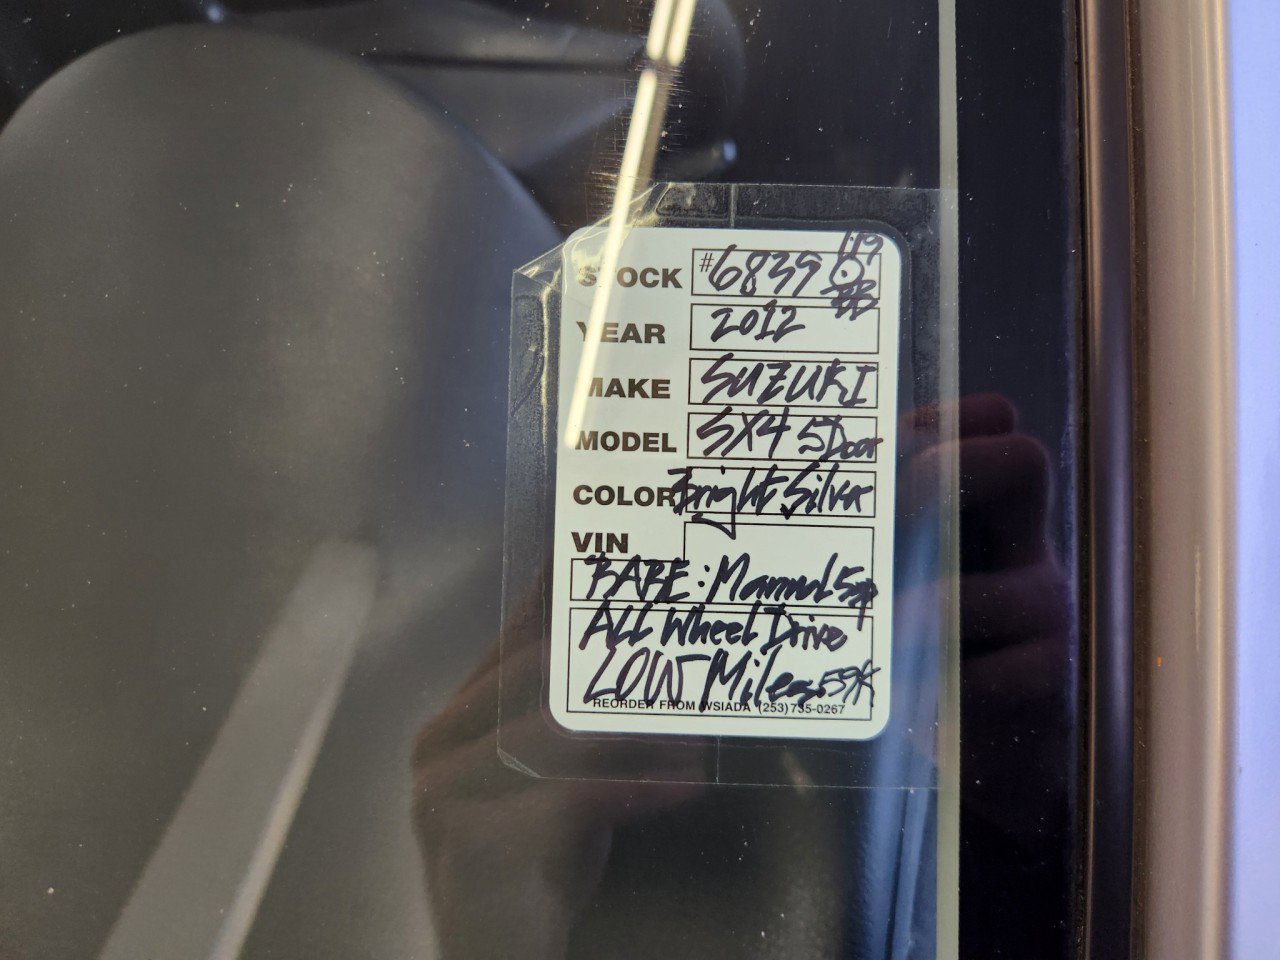 1·19
STOCK #6839
YEAR 2012
MAKE SUZUKI
MODEL SX4 5Door
COLOR Bright Silver
VIN
RARE: Manual 5sp
ALL Wheel Drive
LOW Miles 59K
REORDER FROM WSIADA (253) 735-0267